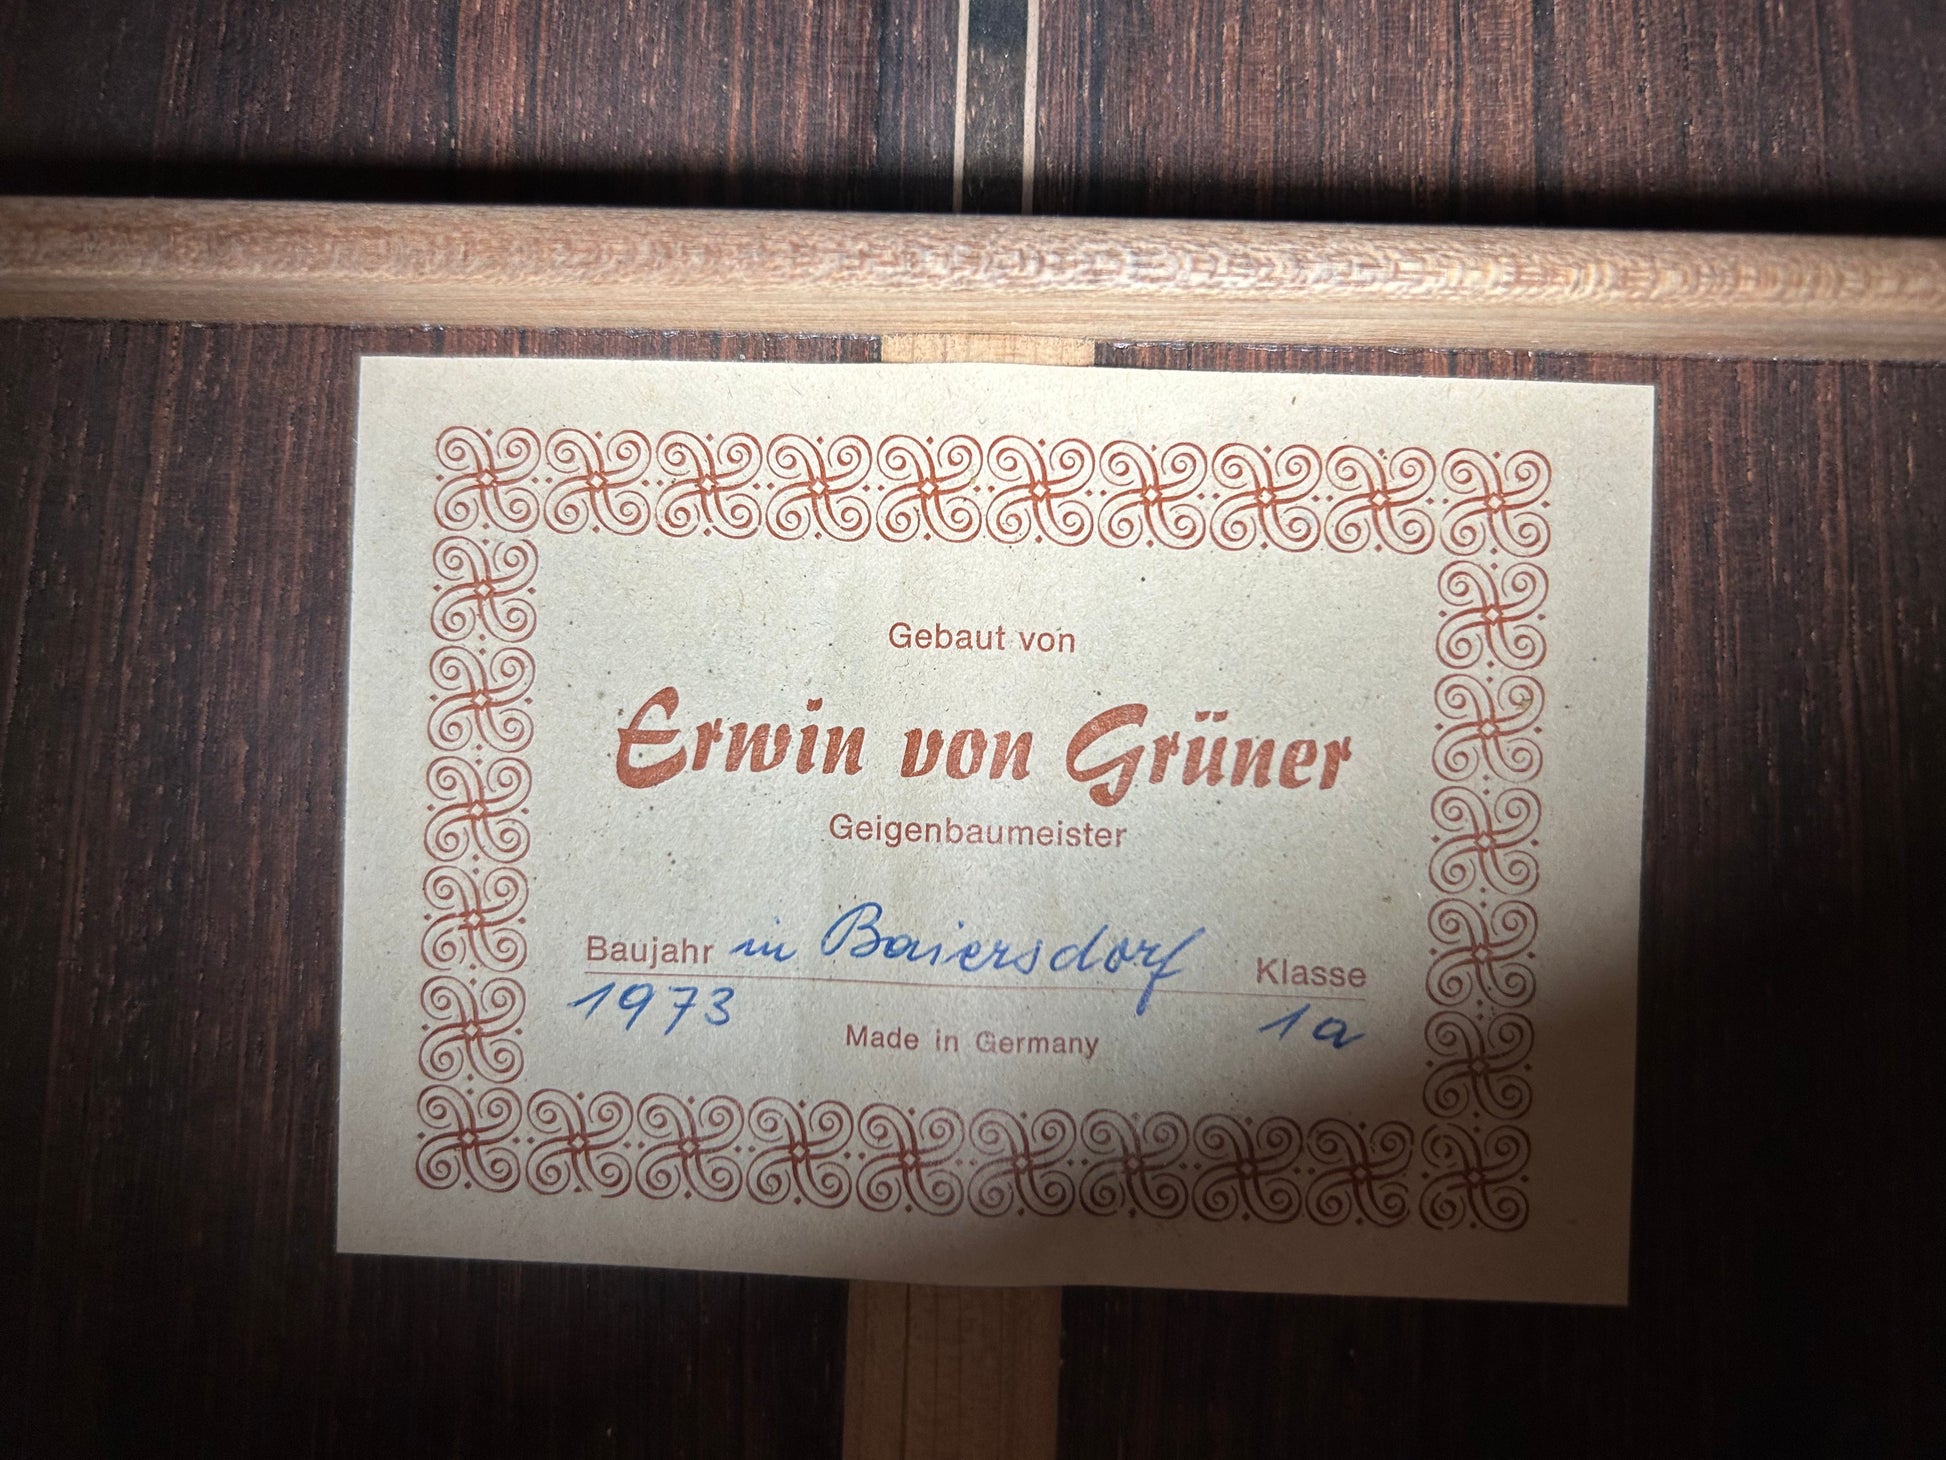 Gebaut von
Erwin von Grüner
Geigenbaumeister
Baujahr in Baiersdorf Klasse
1973 1a
Made in Germany